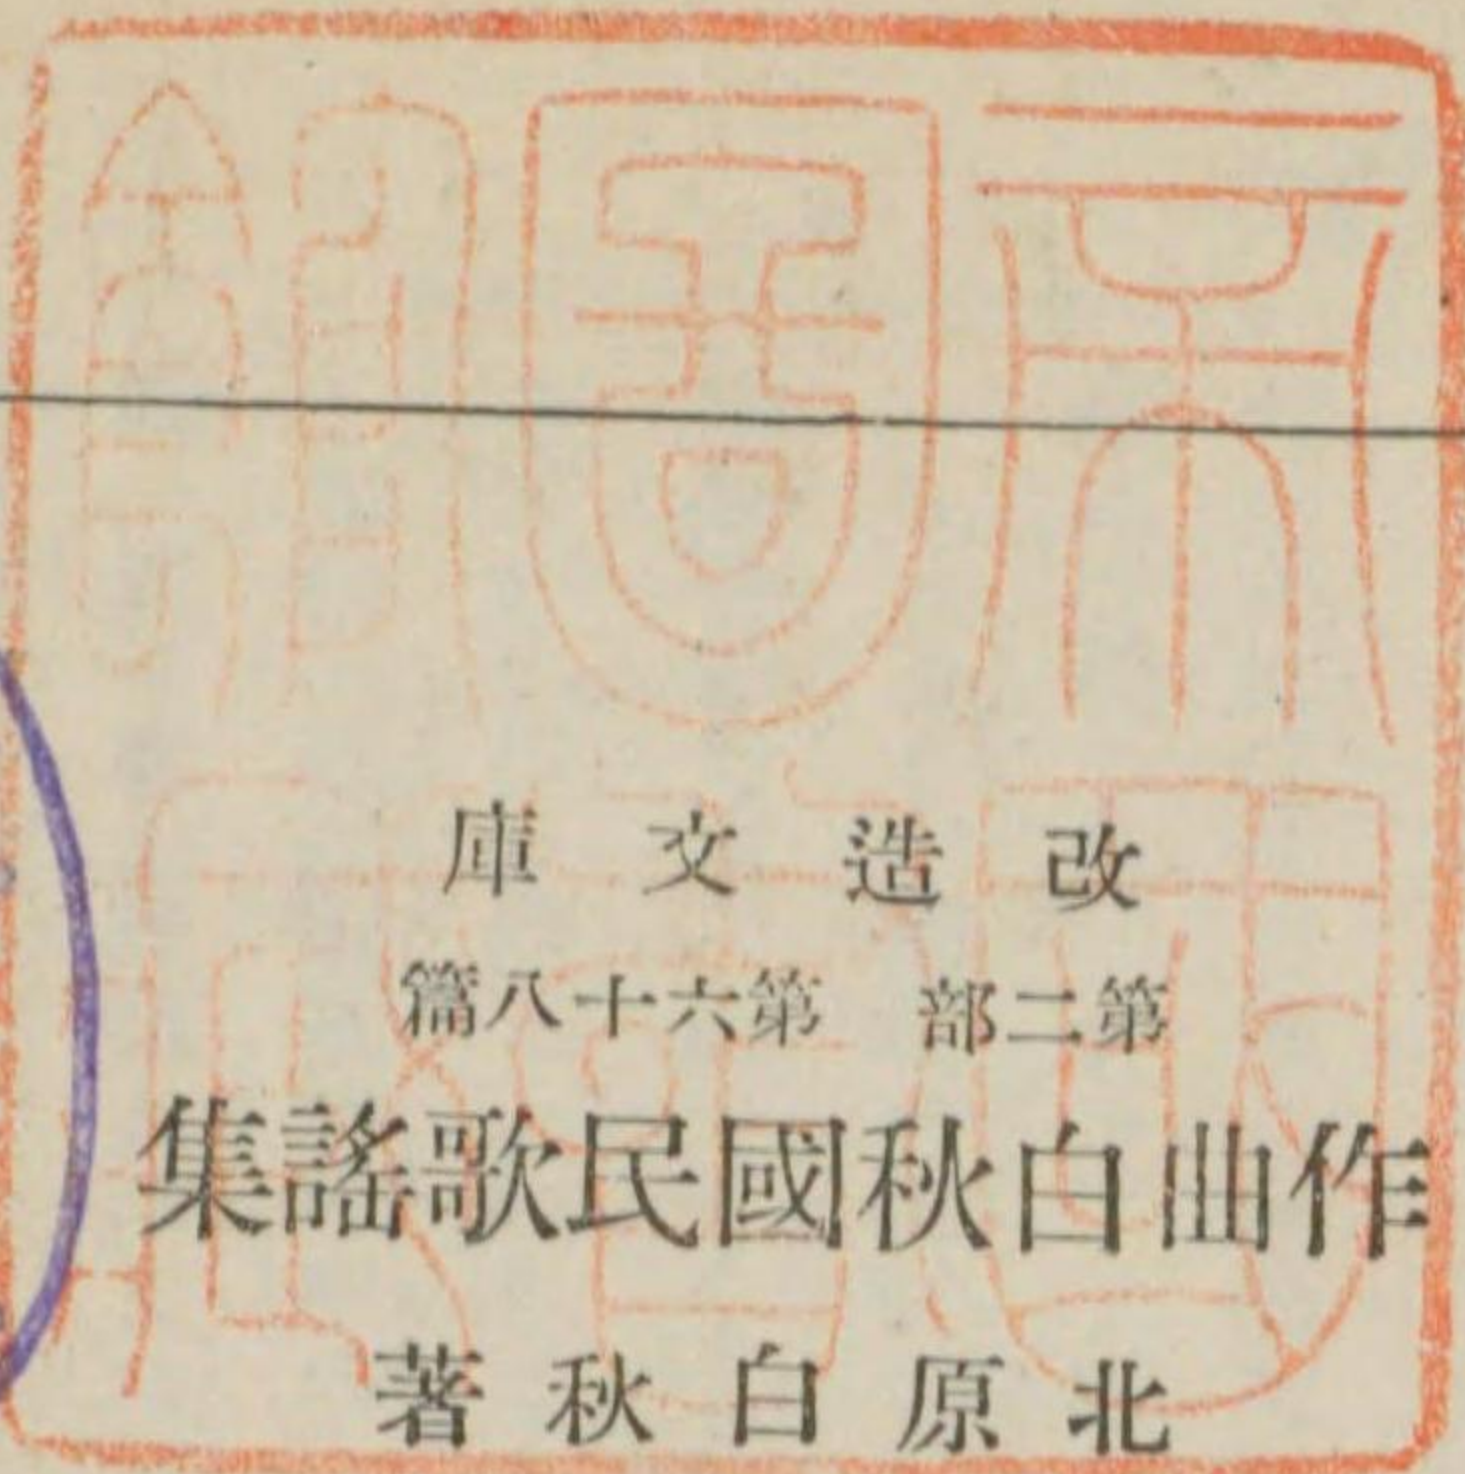 改造文庫
第二部 第六十八篇
作曲白秋國民歌謠集
北原白秋著